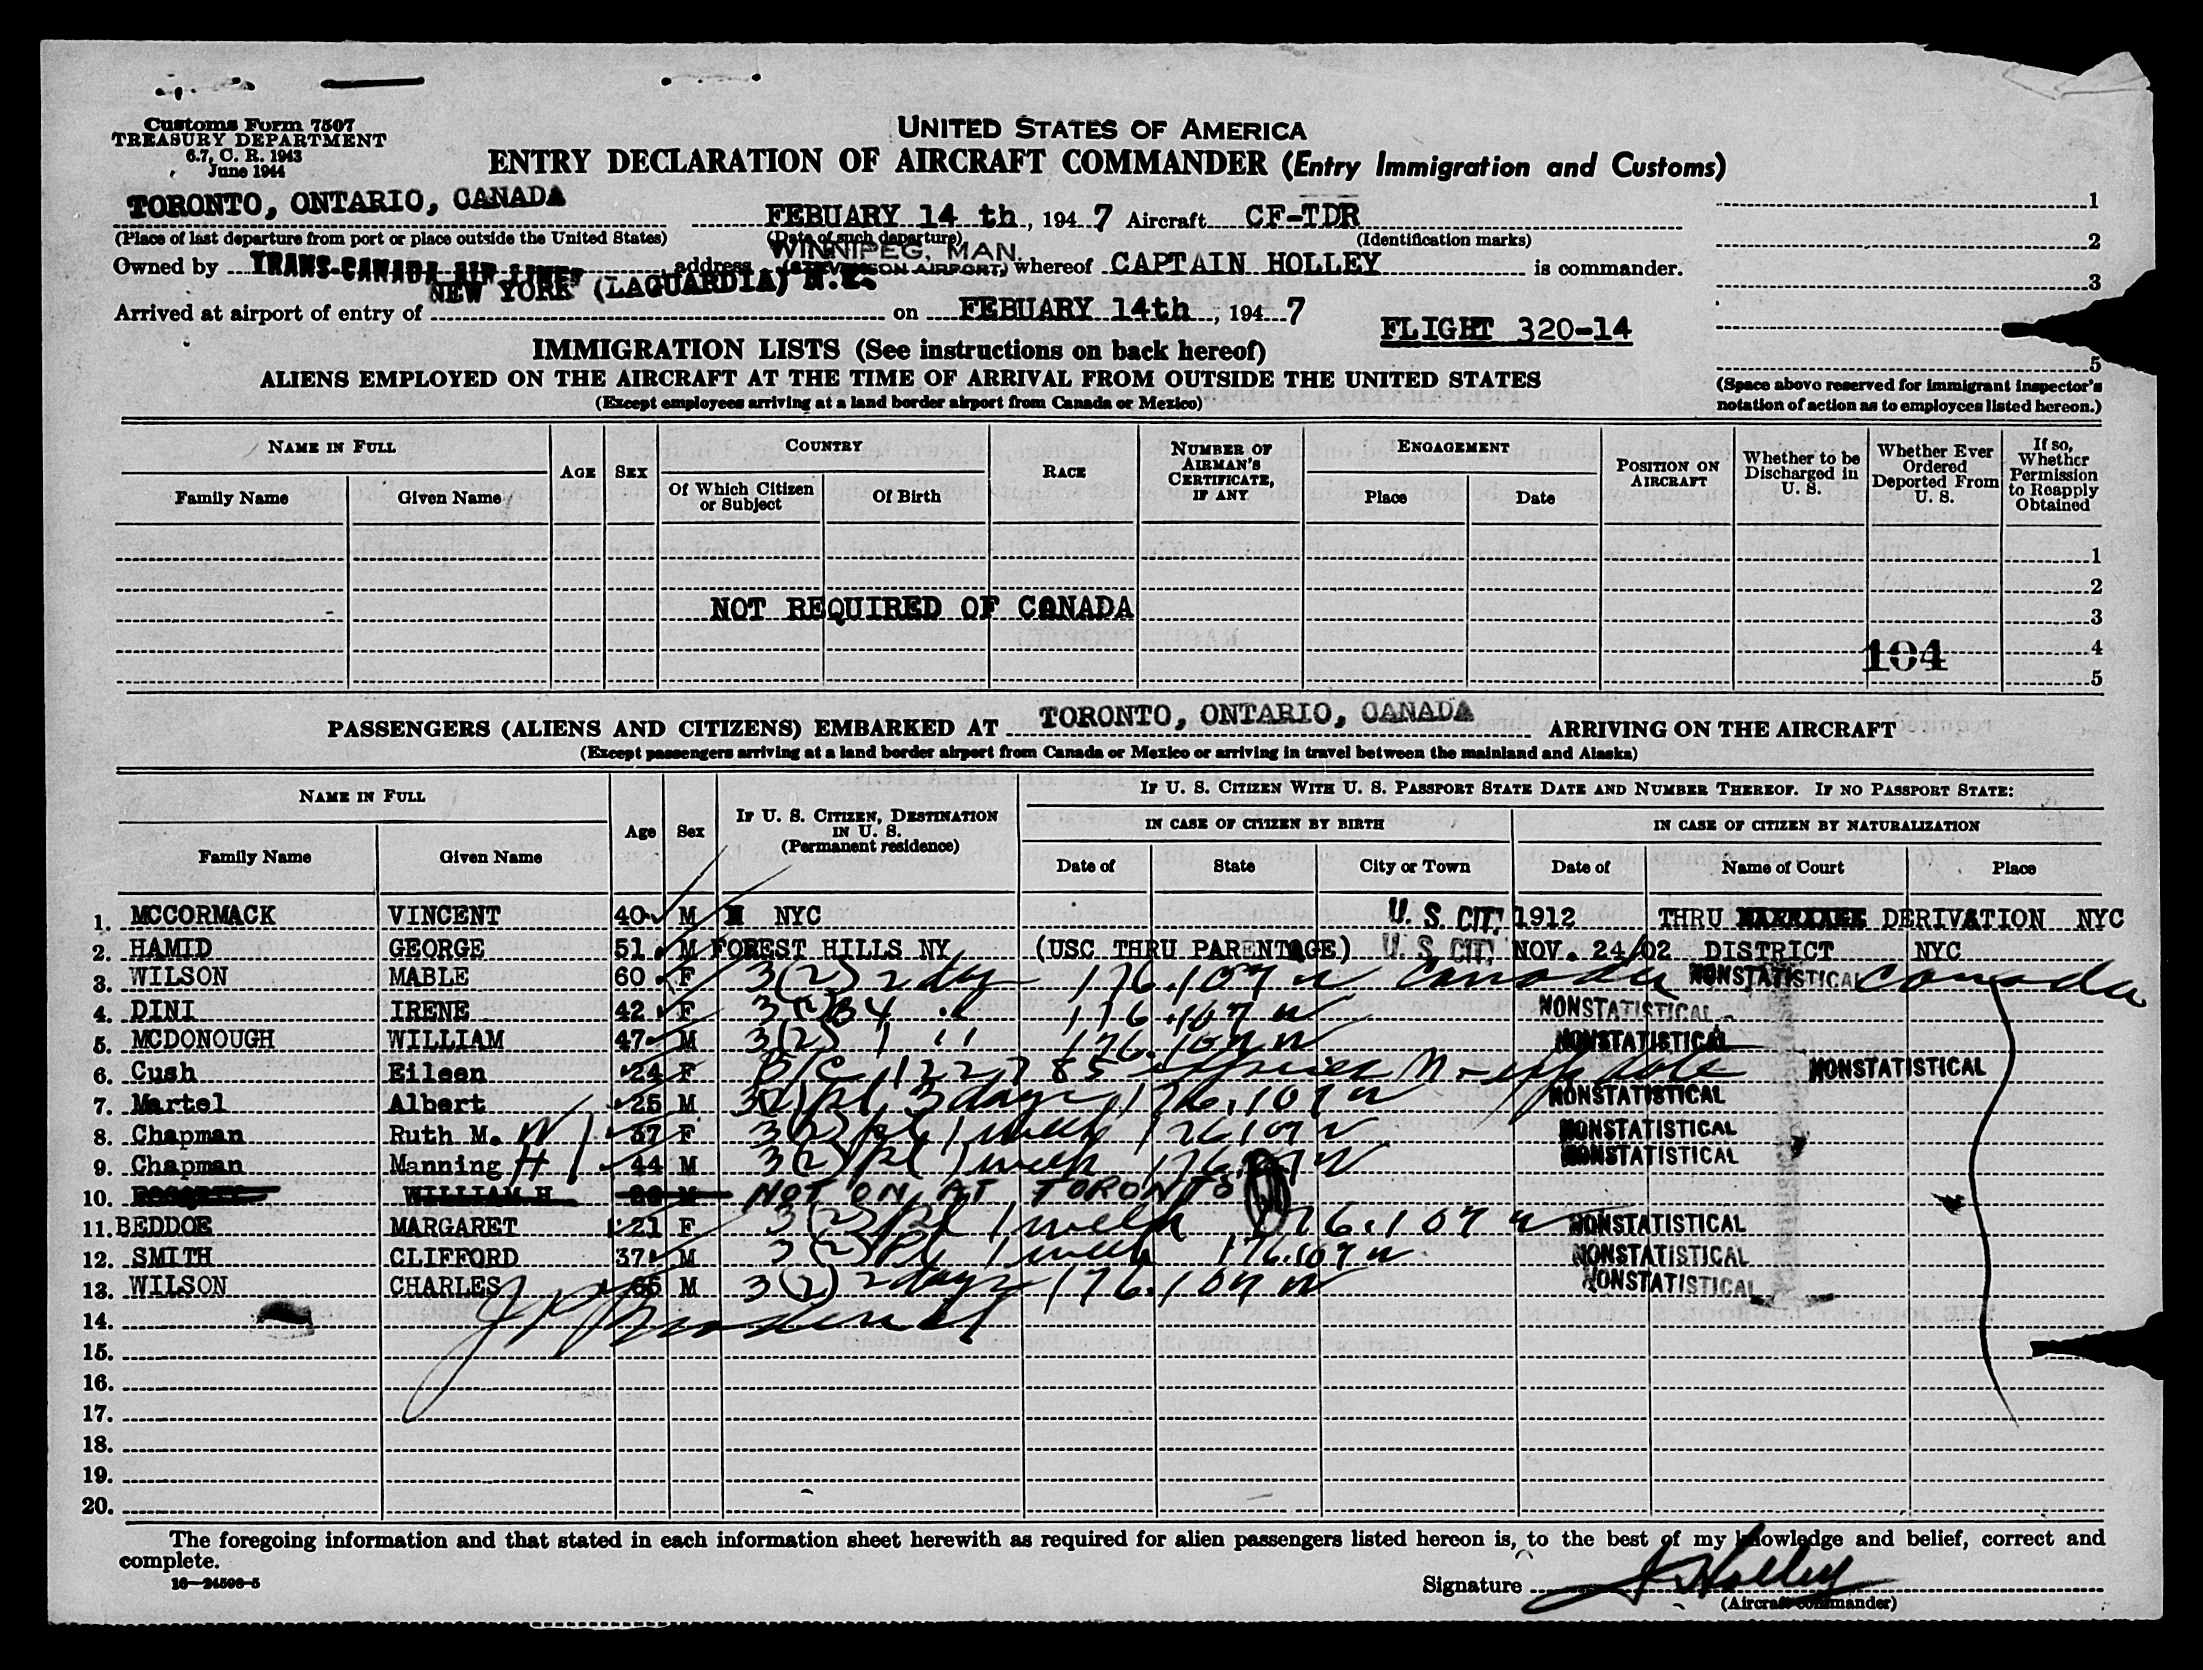 Customs Form 7507
TREASURY DEPARTMENT
6.7, C. R. 1943
June 1944
UNITED STATES OF AMERICA
ENTRY DECLARATION OF AIRCRAFT COMMANDER (Entry Immigration and Customs)
TORONTO, ONTARIO, CANADA FEBUARY 14 th, 194 7 Aircraft CF-TDR 1
(Place of last departure from port or place outside the United States) (Date of such departure) (Identification marks) 2
WINNIPEG, MAN.
Owned by TRANS-CANADA AIR LINES address (STEVENSON AIRPORT) whereof CAPTAIN HOLLEY is commander. 3
NEW YORK (LAGUARDIA) N.Y.
Arrived at airport of entry of on FEBUARY 14th, 194 7
FLIGHT 320-14
IMMIGRATION LISTS (See instructions on back hereof) 5
ALIENS EMPLOYED ON THE AIRCRAFT AT THE TIME OF ARRIVAL FROM OUTSIDE THE UNITED STATES
(Except employees arriving at a land border airport from Canada or Mexico)
(Space above reserved for immigrant inspector's
notation of action as to employees listed hereon.)
NAME IN FULL AGE SEX COUNTRY RACE NUMBER OF AIRMAN'S CERTIFICATE, IF ANY ENGAGEMENT POSITION ON AIRCRAFT Whether to be Discharged in U. S. Whether Ever Ordered Deported From U. S. If so, Whether Permission to Reapply Obtained
Family Name Given Name Of Which Citizen or Subject Of Birth Place Date
1
2
NOT REQUIRED OF CANADA 3
104 4
5
PASSENGERS (ALIENS AND CITIZENS) EMBARKED AT TORONTO, ONTARIO, CANADA ARRIVING ON THE AIRCRAFT
(Except passengers arriving at a land border airport from Canada or Mexico or arriving in travel between the mainland and Alaska)
NAME IN FULL Age Sex IF U. S. CITIZEN, DESTINATION IN U. S. (Permanent residence) IF U. S. CITIZEN WITH U. S. PASSPORT STATE DATE AND NUMBER THEREOF. IF NO PASSPORT STATE:
IN CASE OF CITIZEN BY BIRTH IN CASE OF CITIZEN BY NATURALIZATION
Family Name Given Name Date of State City or Town Date of Name of Court Place
1. MCCORMACK VINCENT 40 M NYC U. S. CIT. 1912 THRU DERIVATION NYC
2. HAMID GEORGE 51 M FOREST HILLS NY (USC THRU PARENTAGE) U. S. CIT. NOV. 24/02 DISTRICT NYC
3. WILSON MABLE 60 F 3(2) 2 day 176.107 Canada NONSTATISTICAL Canada
4. DINI IRENE 42 F 3(2) 176.107 NONSTATISTICAL
5. MCDONOUGH WILLIAM 47 M 3(2) 1 " 176.107 NONSTATISTICAL
6. Cush Eileen 24 F B/C 122785 NONSTATISTICAL
7. Martel Albert 25 M 3(2) pl 3 days 176.107 NONSTATISTICAL
8. Chapman Ruth M. W 37 F 3(2) pl 1 week 176.107 NONSTATISTICAL
9. Chapman Manning H 44 M 3(2) pl 1 week 176.107 NONSTATISTICAL
10. WILLIAM H M NOT ON AT TORONTO
11. BEDDOE MARGARET 21 F 3(2) pl 1 week 176.107 NONSTATISTICAL
12. SMITH CLIFFORD 37 M 3(2) pl 1 week 176.107 NONSTATISTICAL
13. WILSON CHARLES 65 M 3(2) 2 days 176.107 NONSTATISTICAL
14.
15.
16.
17.
18.
19.
20.
The foregoing information and that stated in each information sheet herewith as required for alien passengers listed hereon is, to the best of my knowledge and belief, correct and
complete.
16—24596-5
Signature J Holley
(Aircraft commander)